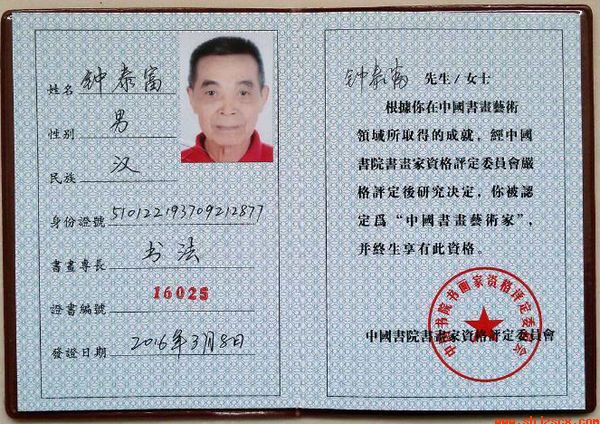 姓名 钟泰富
性别 男
民族 汉
身份證號 510122193709212877
書畫專長 书法
證書編號 16025
發證日期 2016年3月8日
钟泰富 先生/女士
根據你在中國書畫藝術
領域所取得的成就，經中國
書院書畫家資格評定委員會嚴
格評定後研究決定，你被認
定爲“中國書畫藝術家”，
并終生享有此資格。
中國書院書畫家資格評定委員會
中国书院书画家资格评定委员会